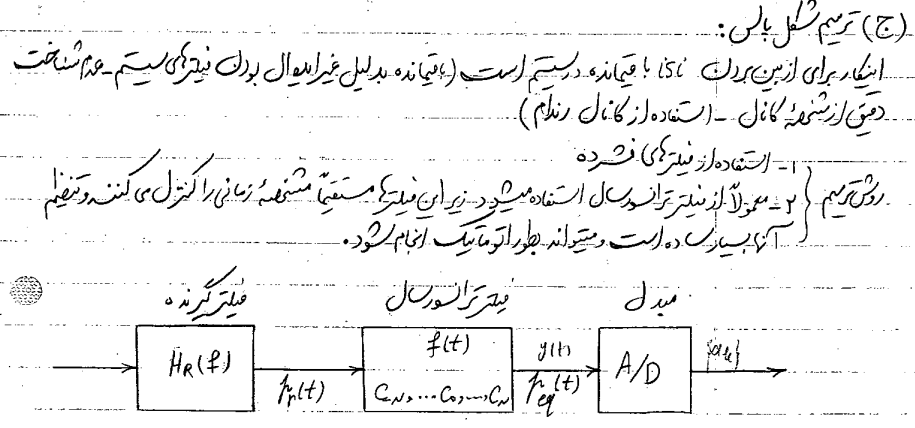 (ج) ترمیم شکل پالس :
اینکار برای از بین بردن ISI باقیمانده در سیستم است (باقیمانده بدلیل غیر ایده‌ال بودن فیلترهای سیستم - عدم شناخت
دقیق از مشخصهٔ کانال - استفاده از کانال رندام)
روش ترمیم
۱- استفاده از فیلترهای فشرده
۲- معمولاً از فیلتر ترانسورسال استفاده میشود زیرا این فیلترها مستقیماً مشخصهٔ زمانی را کنترل می کنند و تنظیم
آنها بسیار ساده است و میتواند بطور اتوماتیک انجام شود.
فیلتر گیرنده فیلتر ترانسورسال مبدل
HR(f) pr(t) f(t) C-N, ... C0, ... CN y(t) peq(t) A/D {ak}